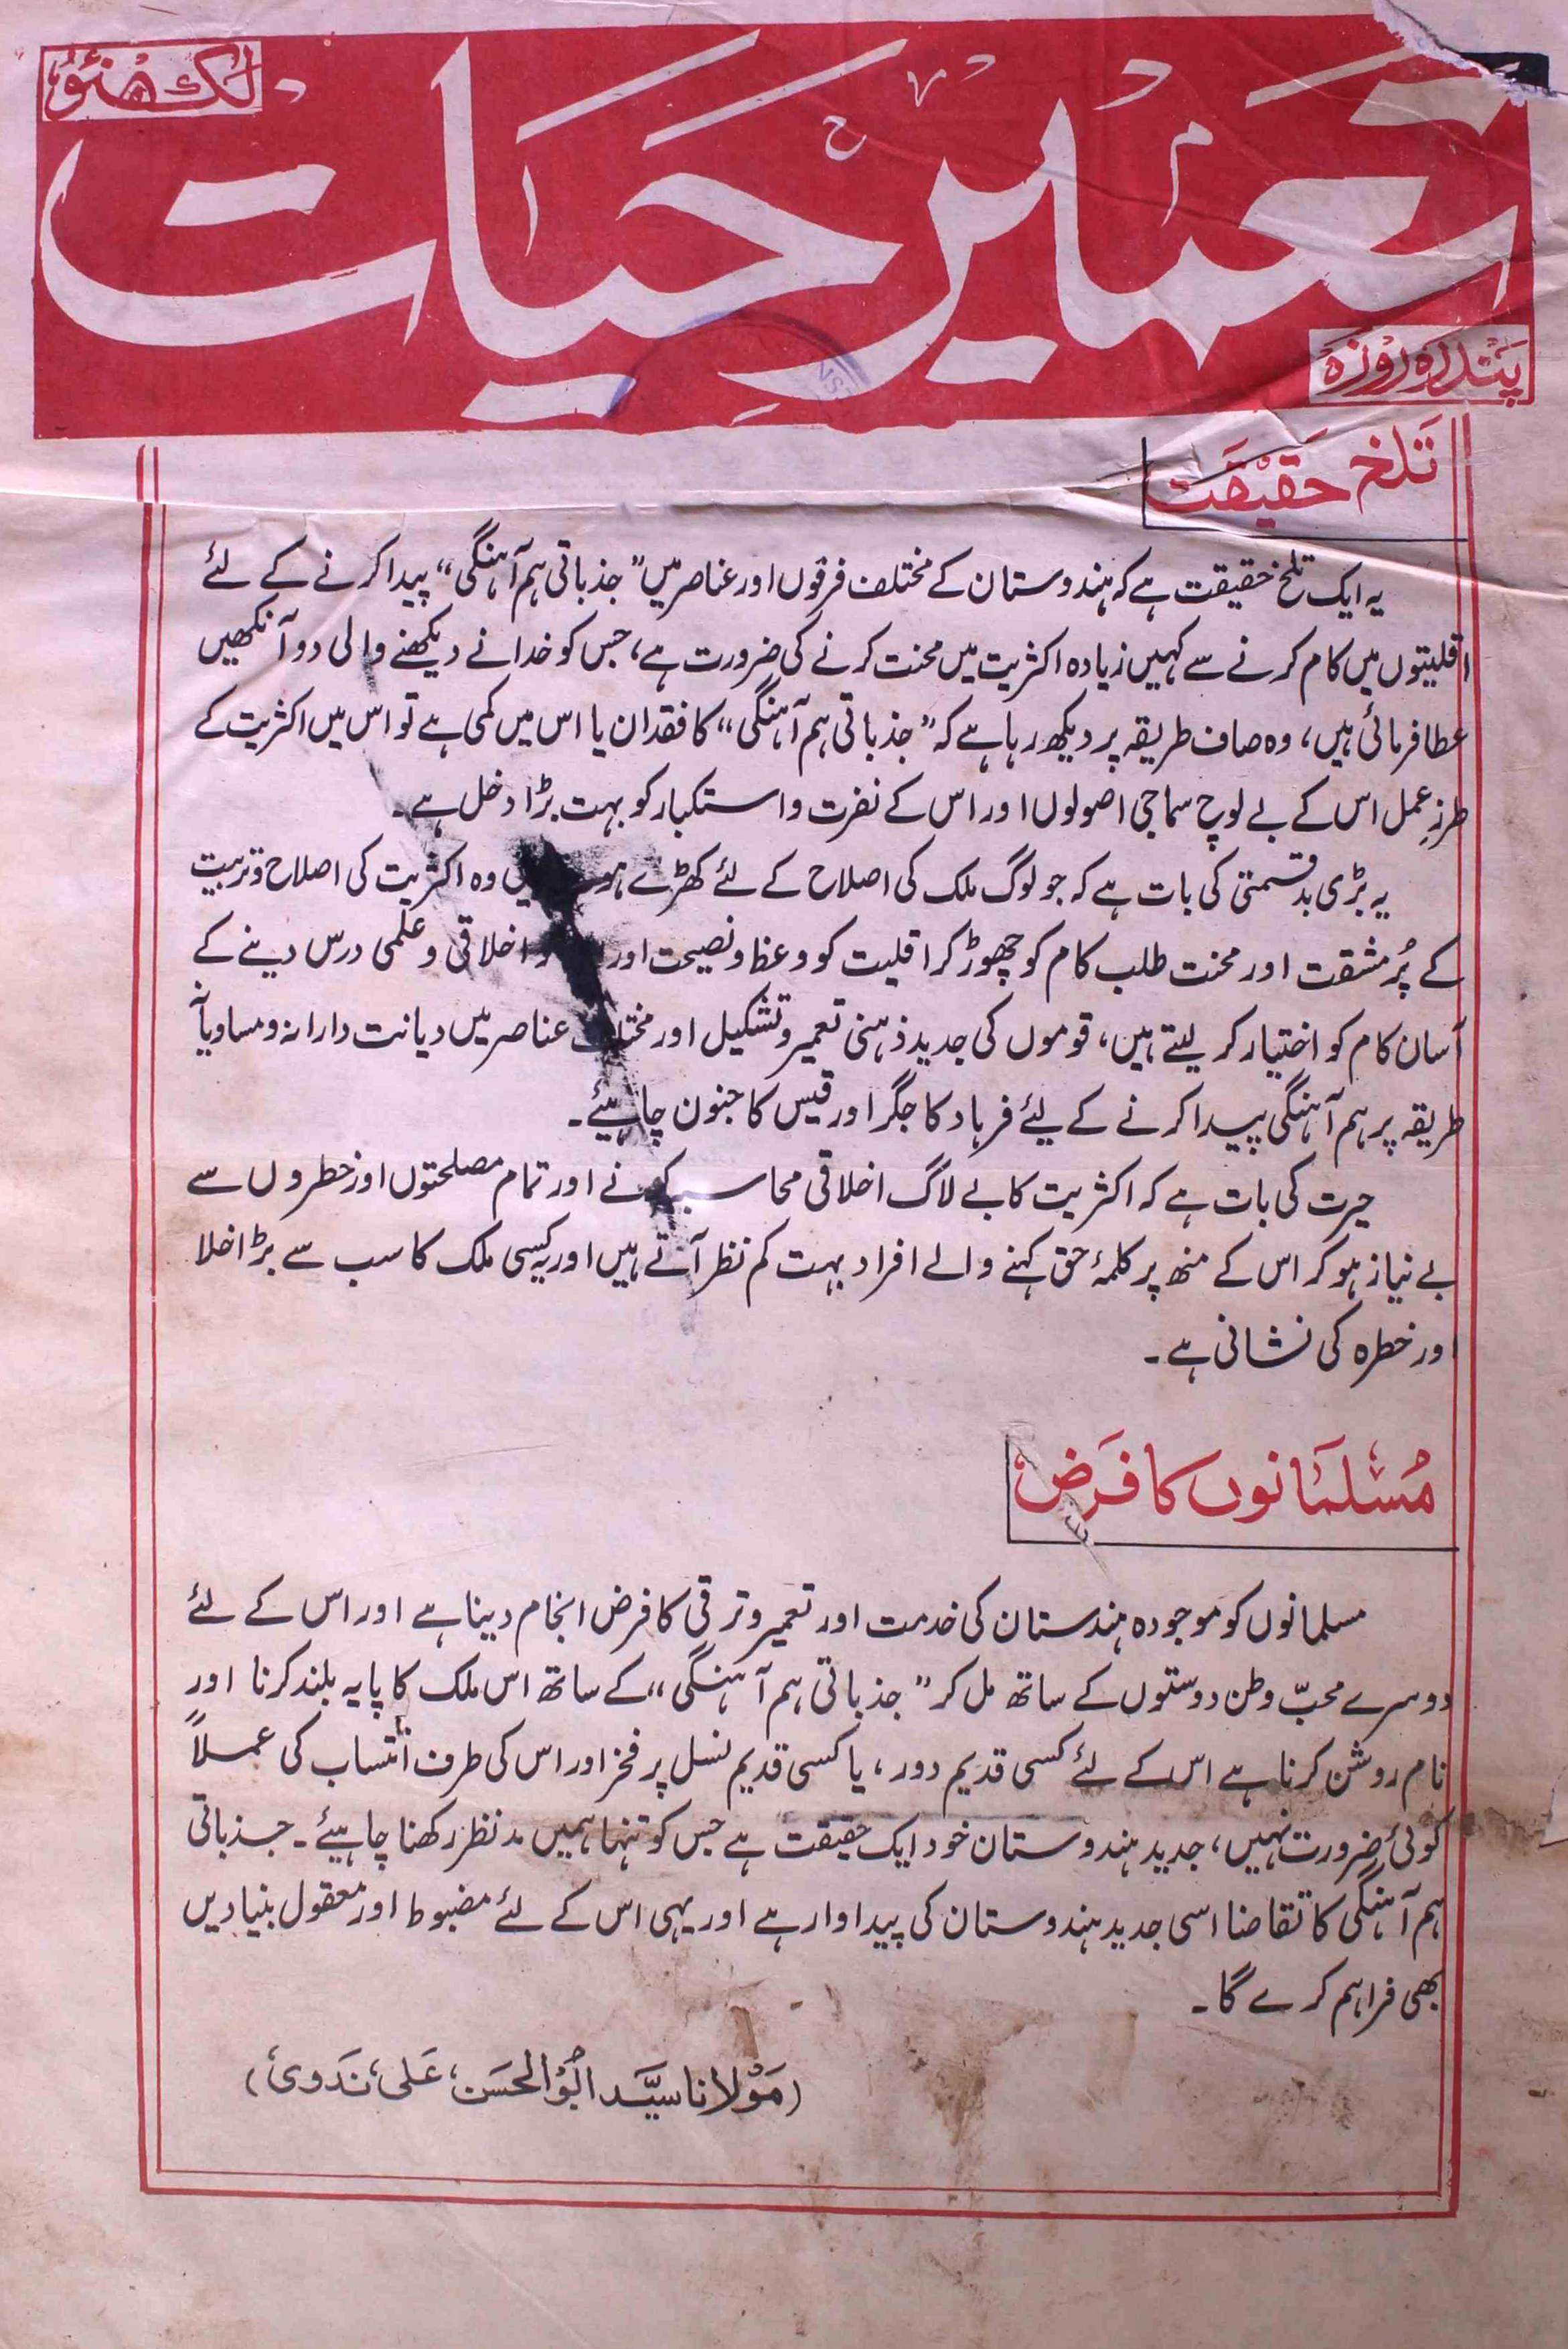 لکھنؤ
تعمیر حیات
پندرہ روزہ
تلخ حقیقت
یہ ایک تلخ حقیقت ہے کہ ہندوستان کے مختلف فرقوں اور عناصر میں "جذباتی ہم آہنگی" پیدا کرنے کے لئے
اقلیتوں میں کام کرنے سے کہیں زیادہ اکثریت میں محنت کرنے کی ضرورت ہے، جس کو خدا نے دیکھنے والی دو آنکھیں
عطا فرمائی ہیں، وہ صاف طریقہ پر دیکھ رہا ہے کہ "جذباتی ہم آہنگی" کا فقدان یا اس میں کمی ہے تو اس میں اکثریت کے
طرزِ عمل اس کے بے لوچ سماجی اصولوں اور اس کے نفرت و استکبار کو بہت بڑا دخل ہے۔
یہ بڑی بدقسمتی کی بات ہے کہ جو لوگ ملک کی اصلاح کے لئے کھڑے وہ اکثریت کی اصلاح و تربیت
کے پُر مشقت اور محنت طلب کام کو چھوڑ کر اقلیت کو وعظ و نصیحت اور اخلاقی و علمی درس دینے کے
آسان کام کو اختیار کر لیتے ہیں، قوموں کی جدید ذہنی تعمیر و تشکیل اور مختلف عناصر میں دیانت دارانہ و مساویانہ
طریقہ پر ہم آہنگی پیدا کرنے کے لیئے فرہاد کا جگر اور قیس کا جنون چاہیئے۔
حیرت کی بات ہے کہ اکثریت کا بے لاگ اخلاقی محاسبہ کرنے اور تمام مصلحتوں اور خطروں سے
بے نیاز ہو کر اس کے منھ پر کلمۂ حق کہنے والے افراد بہت کم نظر آتے ہیں اور یہ کسی ملک کا سب سے بڑا خلا
اور خطرہ کی نشانی ہے۔
مسلمانوں کا فرض
مسلمانوں کو موجودہ ہندستان کی خدمت اور تعمیر و ترقی کا فرض انجام دینا ہے اور اس کے لئے
دوسرے محبّ وطن دوستوں کے ساتھ مل کر "جذباتی ہم آہنگی" کے ساتھ اس ملک کا پایہ بلند کرنا اور
نام روشن کرنا ہے اس کے لئے کسی قدیم دور، یا کسی قدیم نسل پر فخر اور اس کی طرف انتساب کی عملاً
کوئی ضرورت نہیں، جدید ہندوستان خود ایک حقیقت ہے جس کو تنہا ہمیں مد نظر رکھنا چاہیئے۔ جذباتی
ہم آہنگی کا تقاضا اسی جدید ہندوستان کی پیداوار ہے اور یہی اس کے لئے مضبوط اور معقول بنیادیں
بھی فراہم کرے گا۔
(مولانا سیّد ابوالحسن علی ندوی)